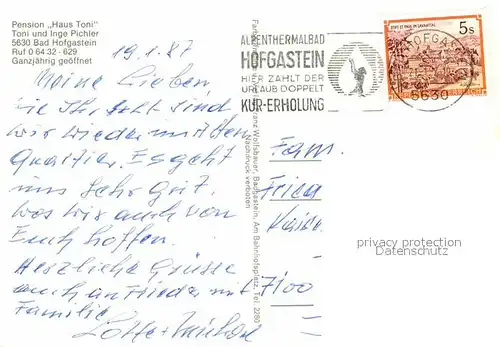 Pension „Haus Toni"
Toni und Inge Pichler
5630 Bad Hofgastein
Ruf 0 64 32 - 629
Ganzjährig geöffnet
19.1.87
Meine Lieben,
wie Ihr seht sind
wir wieder mit dem
Quartier. Es geht
uns sehr gut,
was wir auch von
Euch hoffen.
Herzliche Grüsse
auch an Frieda mit
Familie
Lotte + Michael
ALPENTHERMALBAD
HOFGASTEIN
HIER ZÄHLT DER
URLAUB DOPPELT
KUR-ERHOLUNG
HOFGASTEIN
5630
STIFT ST. PAUL IM LAVANTTAL
5s
Wolfsbauer, Badgastein, Am Bahnhofsplatz, Tel. 2280
Nachdruck verboten
Fam.
Erica
7100
privacy protection
Datenschutz